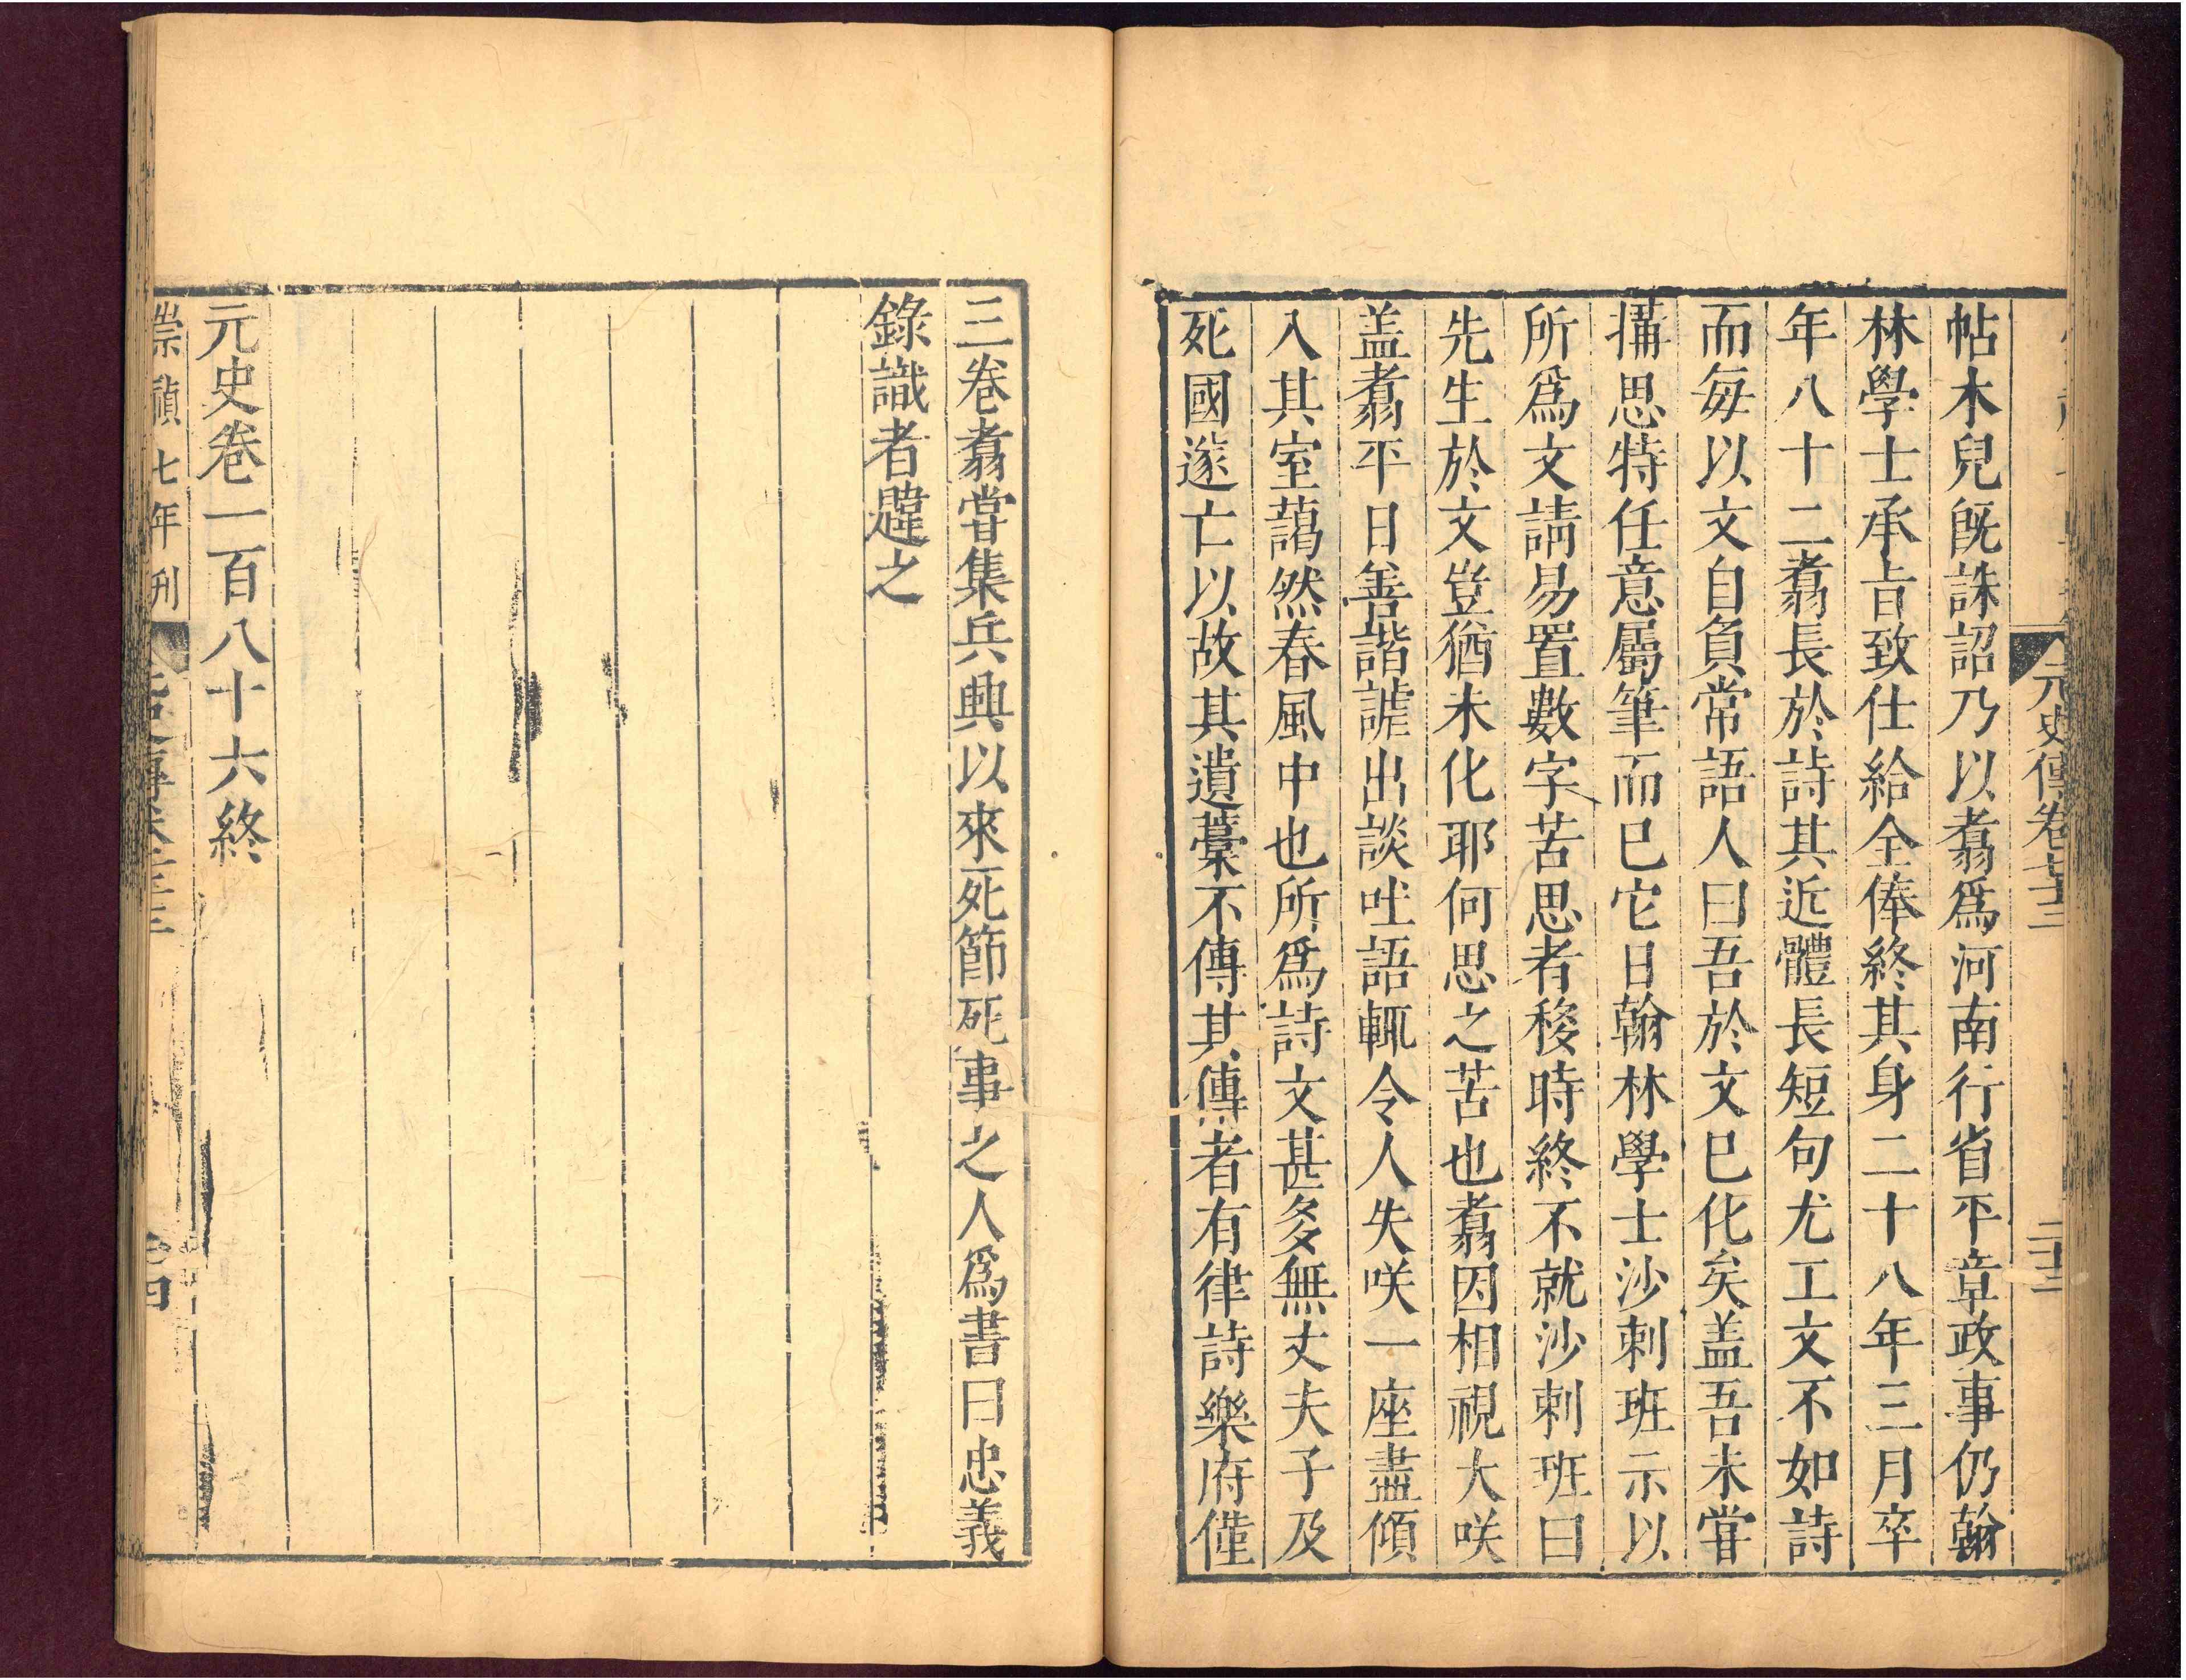 元史傳卷七十三
二十三
帖木兒旣誅詔乃以翥爲河南行省平章政事仍翰
林學士承旨致仕給全俸終其身二十八年三月卒
年八十二翥長於詩其近體長短句尤工文不如詩
而每以文自負常語人曰吾於文巳化矣盖吾未甞
搆思特任意屬筆而巳它日翰林學士沙剌班示以
所爲文請易置數字苦思者移時終不就沙剌班曰
先生於文豈猶未化耶何思之苦也翥因相視大咲
盖翥平日善諧謔出談吐語輒令人失咲一座盡傾
入其室藹然春風中也所爲詩文甚多無丈夫子及
死國遂亡以故其遺藳不傳其傳者有律詩樂府僅
三卷翥甞集兵興以來死節死事之人爲書曰忠義
錄識者韙之
元史卷一百八十六終
崇禎七年刊